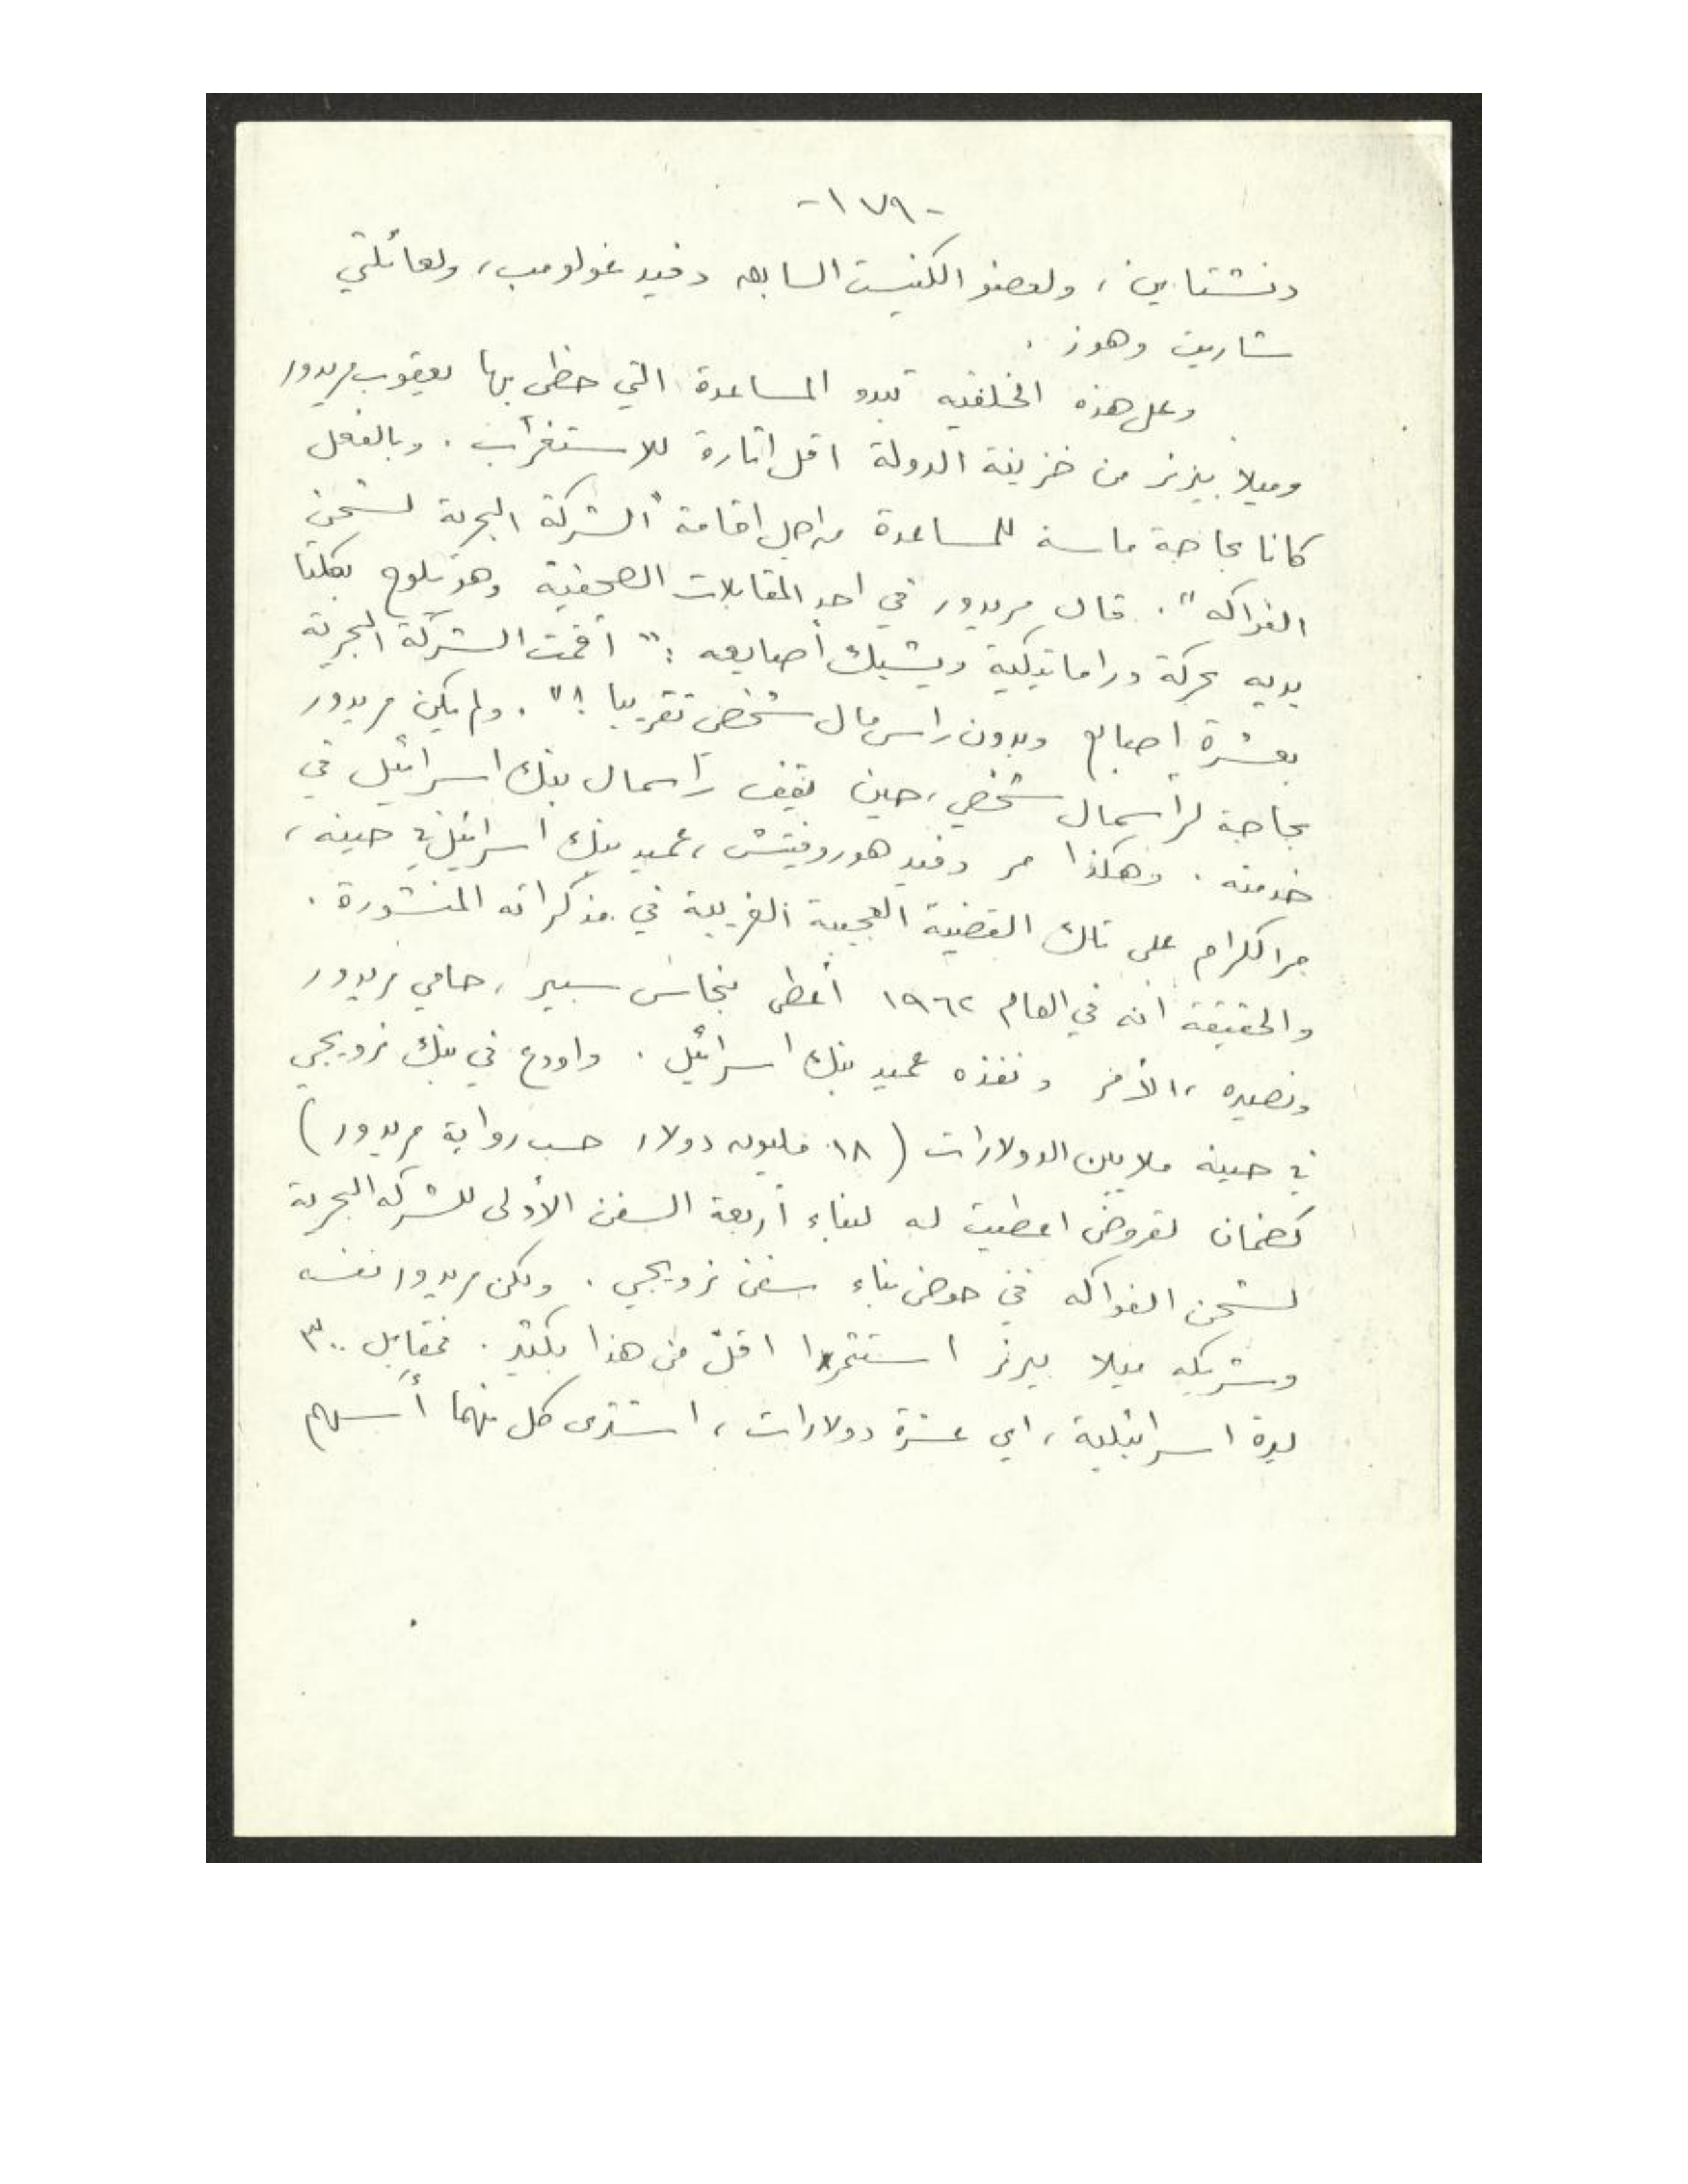 -١٧٩-
دنشتاين، ولعضو الكنيست السابق دفيد غولومب، ولعائلتي
شاريت وهوز.
وعلى هذه الخلفية تبدو المساعدة التي حظي بها يعقوب مريدور
وميلا برنر من خزينة الدولة اقل اثارة للاستغراب. وبالفعل
كانا بحاجة ماسة للمساعدة من اجل اقامة "الشركة البحرية لشحن
الفواكه". قال مريدور في احد المقابلات الصحفية وهو يلوح بكلتا
يديه بحركة دراماتيكية ويشبك أصابعه: "أقمت الشركة البحرية
بعشرة اصابع وبدون راس مال شخصي تقريبا!". ولم يكن مريدور
بحاجة لرأسمال شخصي، حين يقف رأسمال بنك اسرائيل في
خدمته. وهكذا مر دفيد هوروفيتش، عميد بنك اسرائيل في حينه،
مر الكرام على تلك القضية العجيبة الغريبة في مذكراته المنشورة.
والحقيقة أنه في العام ١٩٦٢ أعطى بنحاس سبير، حامي مريدور
ونصيره، الأمر ونفذه عميد بنك اسرائيل. واودع في بنك نرويجي
في حينه ملايين الدولارات (١٨ مليون دولار حسب رواية مريدور)
كضمان لقروض اعطيت له لبناء أربعة السفن الأولى للشركة البحرية
لشحن الفواكه في حوض بناء سفن نرويجي. ولكن مريدور نفسه
وشريكه ميلا برنر استثمرا اقل من هذا بكثير. فمقابل ٣٠٠
ليرة اسرائيلية، اي عشرة دولارات، اشترى كل منهما أسهم